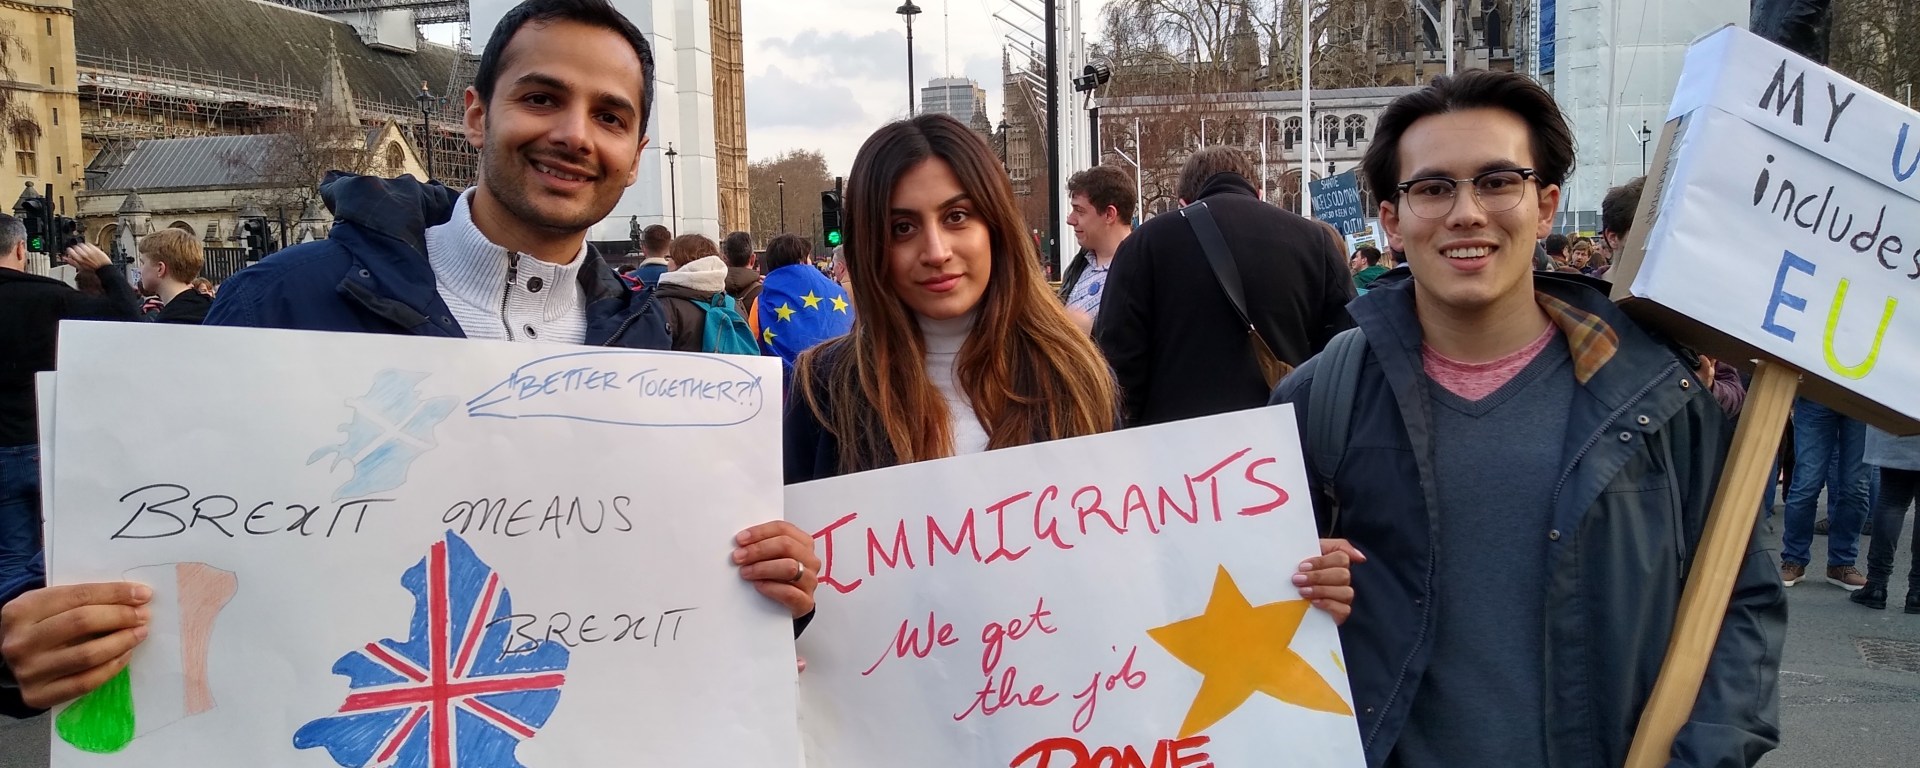 "BETTER TOGETHER?!
BREXIT MEANS
BREXIT
IMMIGRANTS
We get
the job
DONE
MY U
includes
EU
SHAME
OUT!!